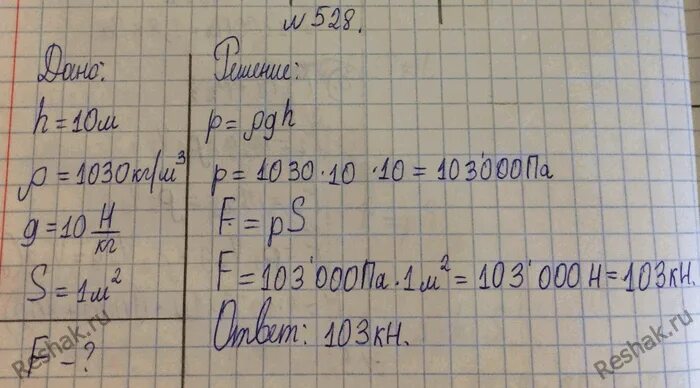 №528.
Дано:
h=10м
ρ=1030кг/м³
g=10 Н/кг
S=1м²
F-?
Решение:
p=ρgh
p=1030·10·10=103'000Па
F=pS
F=103'000Па·1м²=103'000Н=103кН.
Ответ: 103кН.
Reshak.ru
Reshak.ru